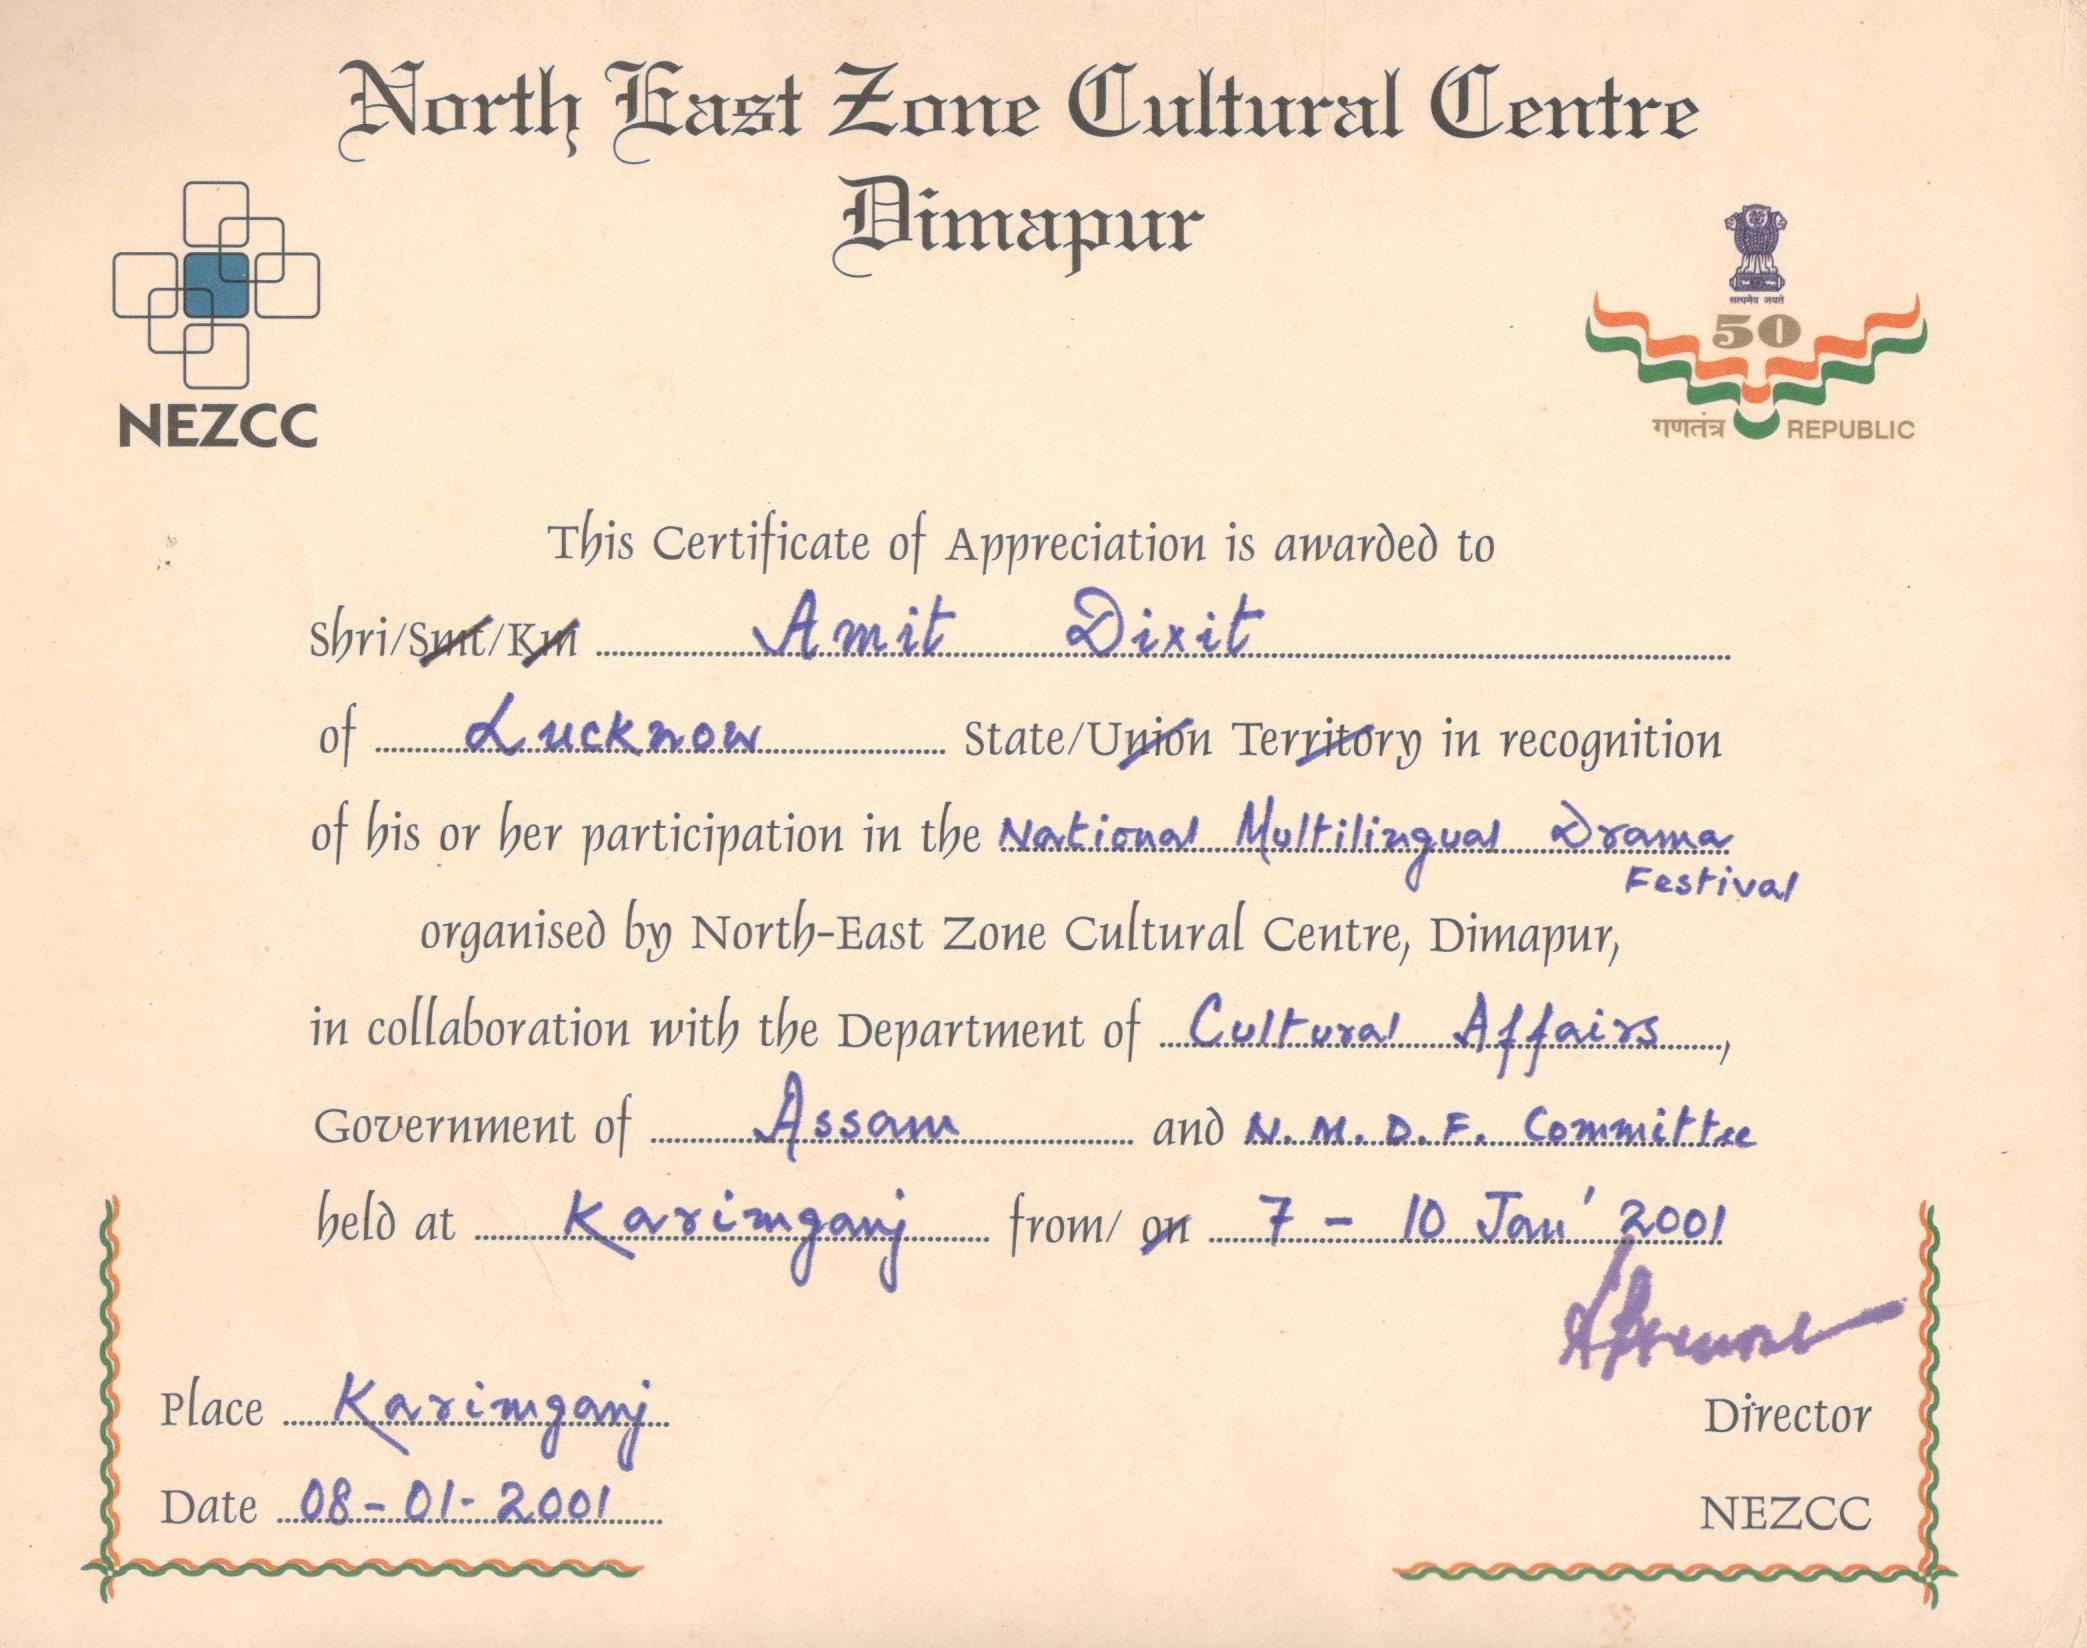 North East Zone Cultural Centre
Dimapur
NEZCC
सत्यमेव जयते
50
गणतंत्र REPUBLIC
This Certificate of Appreciation is awarded to
Shri/Smt/Km Amit Dixit
of Lucknow State/Union Territory in recognition
of his or her participation in the National Multilingual Drama
Festival
organised by North-East Zone Cultural Centre, Dimapur,
in collaboration with the Department of Cultural Affairs,
Government of Assam and N.M.D.F. Committee
held at Karimganj from/ on 7 - 10 Jan' 2001
Place Karimganj
Date 08-01-2001
Director
NEZCC